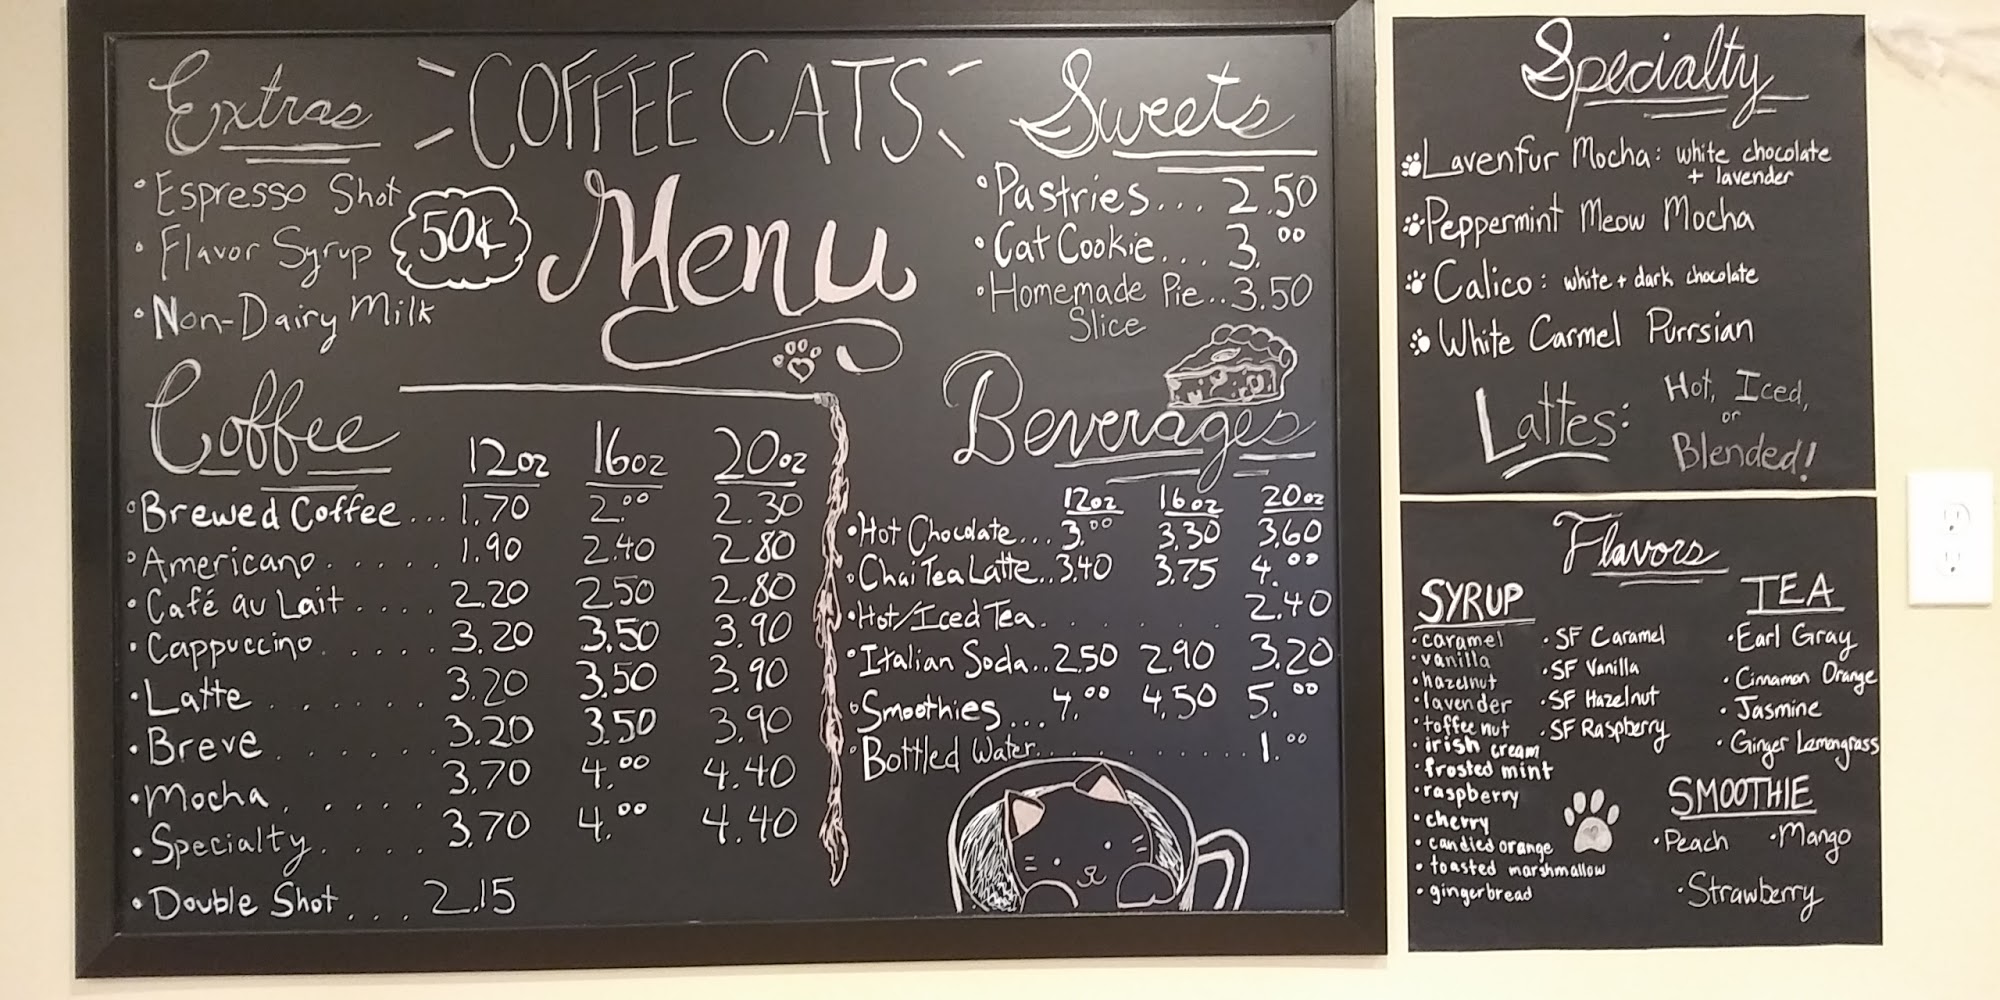 COFFEE CATS
Menu
Extras
Espresso Shot
Flavor Syrup
Non-Dairy Milk
50¢
Coffee
12oz 16oz 20oz
Brewed Coffee... 1.70 2.00 2.30
Americano..... 1.90 2.40 2.80
Café au Lait.... 2.20 2.50 2.80
Cappuccino..... 3.20 3.50 3.90
Latte...... 3.20 3.50 3.90
Breve...... 3.20 3.50 3.90
Mocha..... 3.70 4.00 4.40
Specialty.... 3.70 4.00 4.40
Double Shot... 2.15
Sweets
Pastries... 2.50
Cat Cookie... 3.00
Homemade Pie..3.50
Slice
Beverages
12oz 16oz 20oz
Hot Chocolate... 3.00 3.30 3.60
Chai Tea Latte.. 3.40 3.75 4.00
Hot/Iced Tea. . . . . . 2.40
Italian Soda.. 2.50 2.90 3.20
Smoothies... 4.00 4.50 5.00
Bottled Water.......... 1.00
Specialty
Lavenfur Mocha: white chocolate
+ lavender
Peppermint Meow Mocha
Calico: white + dark chocolate
White Carmel Purrsian
Lattes: Hot, Iced,
or
Blended!
Flavors
SYRUP
caramel
vanilla
hazelnut
lavender
toffee nut
irish cream
frosted mint
raspberry
cherry
candied orange
toasted marshmallow
gingerbread
SF Caramel
SF Vanilla
SF Hazelnut
SF Raspberry
TEA
Earl Gray
Cinnamon Orange
Jasmine
Ginger Lemongrass
SMOOTHIE
Peach Mango
Strawberry